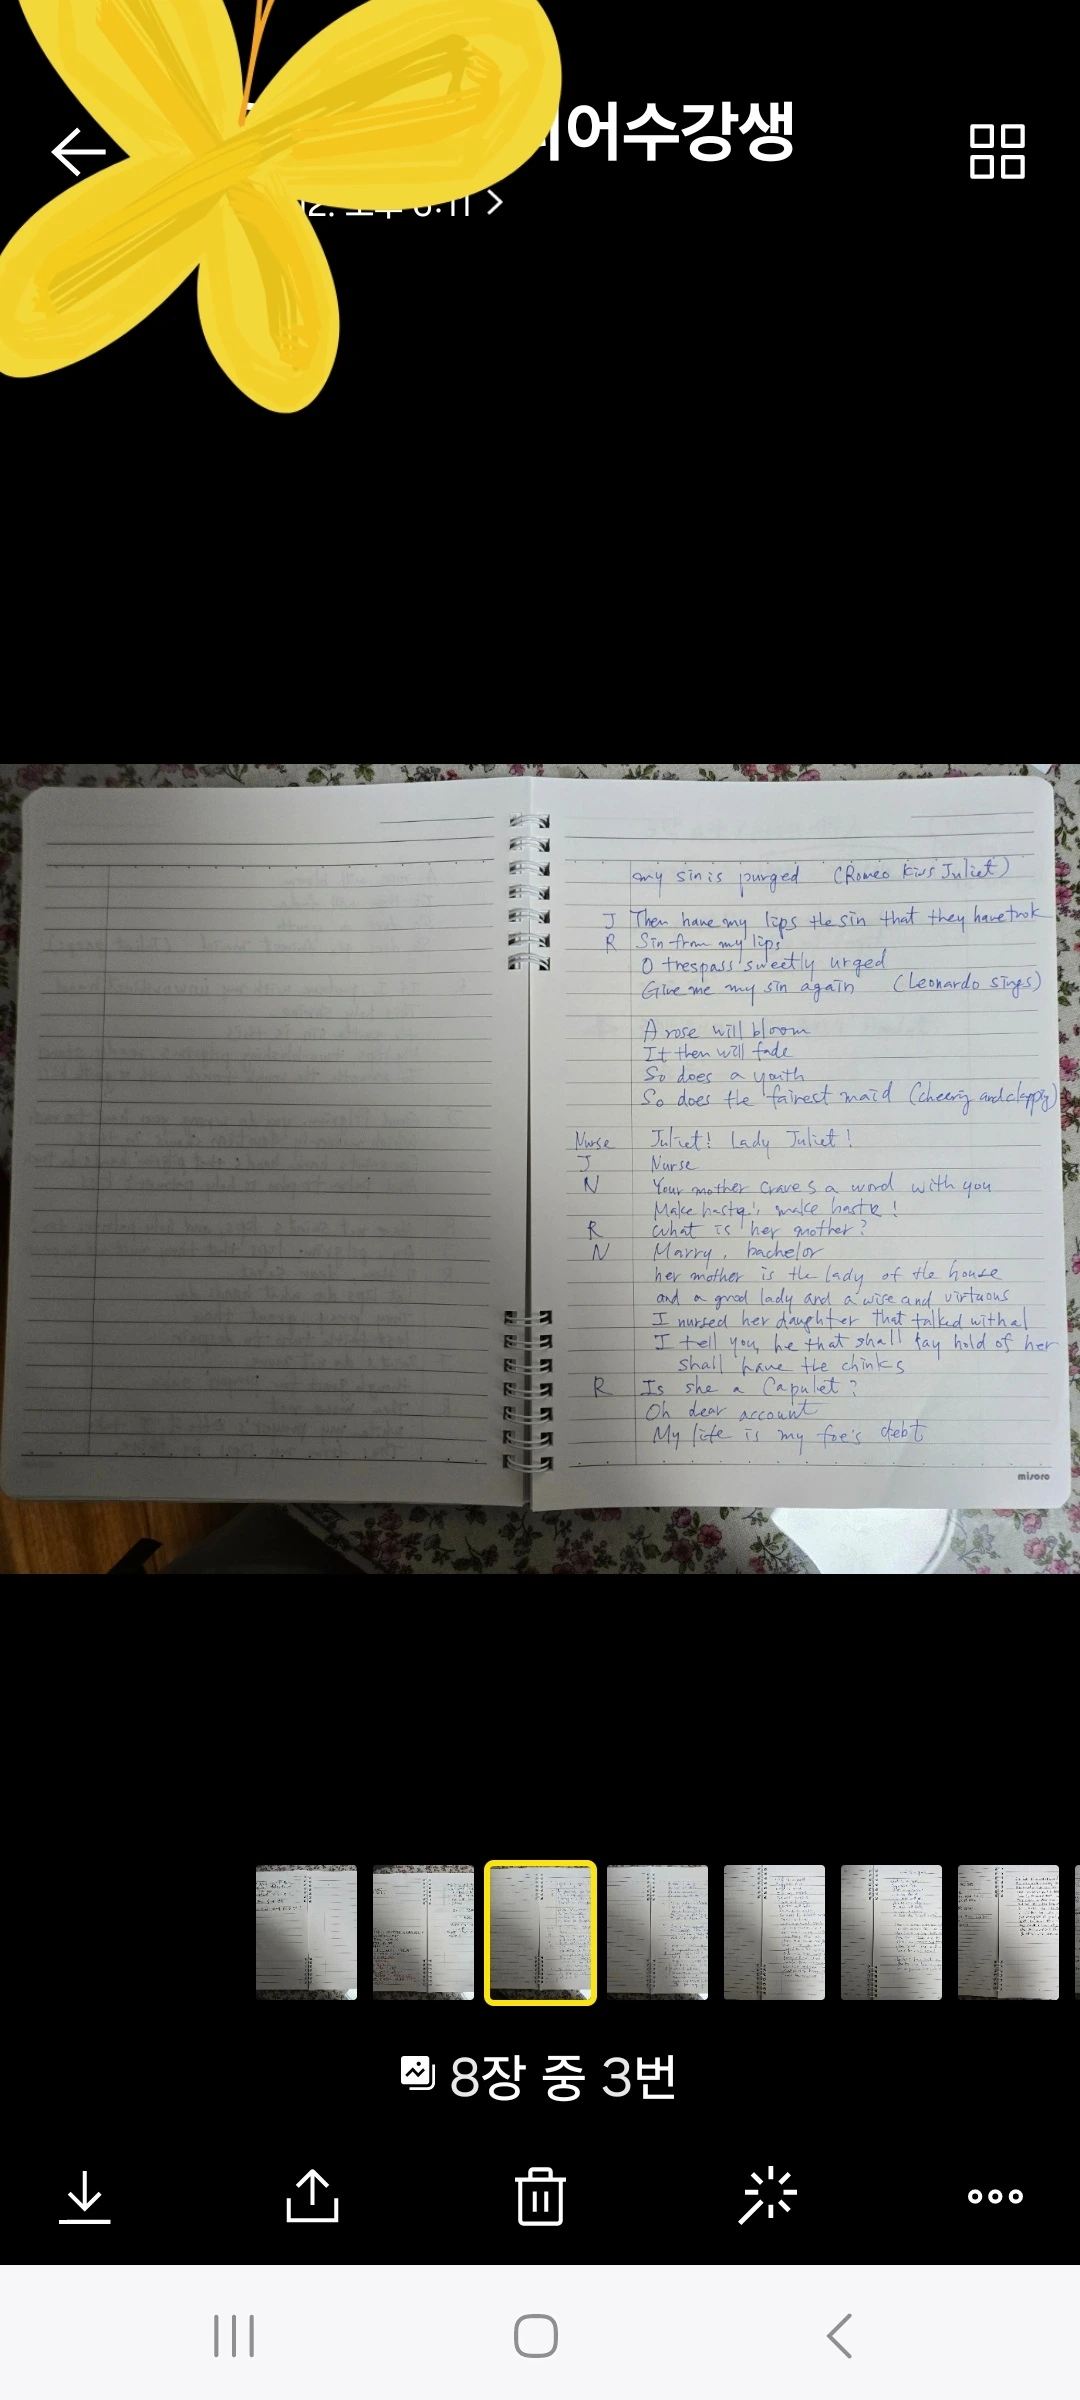 어수강생
my sin is purged (Romeo kiss Juliet)
J Then have my lips the sin that they have took
R Sin from my lips
O trespass sweetly urged
Give me my sin again (Leonardo sings)
A rose will bloom
It then will fade
So does a youth
So does the fairest maid (cheering and clapping)
Nurse Juliet! Lady Juliet!
J Nurse
N Your mother craves a word with you
Make haste, make haste!
R What is her mother?
N Marry, bachelor
her mother is the lady of the house
and a good lady and a wise and virtuous
I nursed her daughter that talked withal
I tell you, he that shall lay hold of her
shall have the chinks
R Is she a Capulet?
Oh dear account
My life is my foe's debt
misoro
8장 중 3번